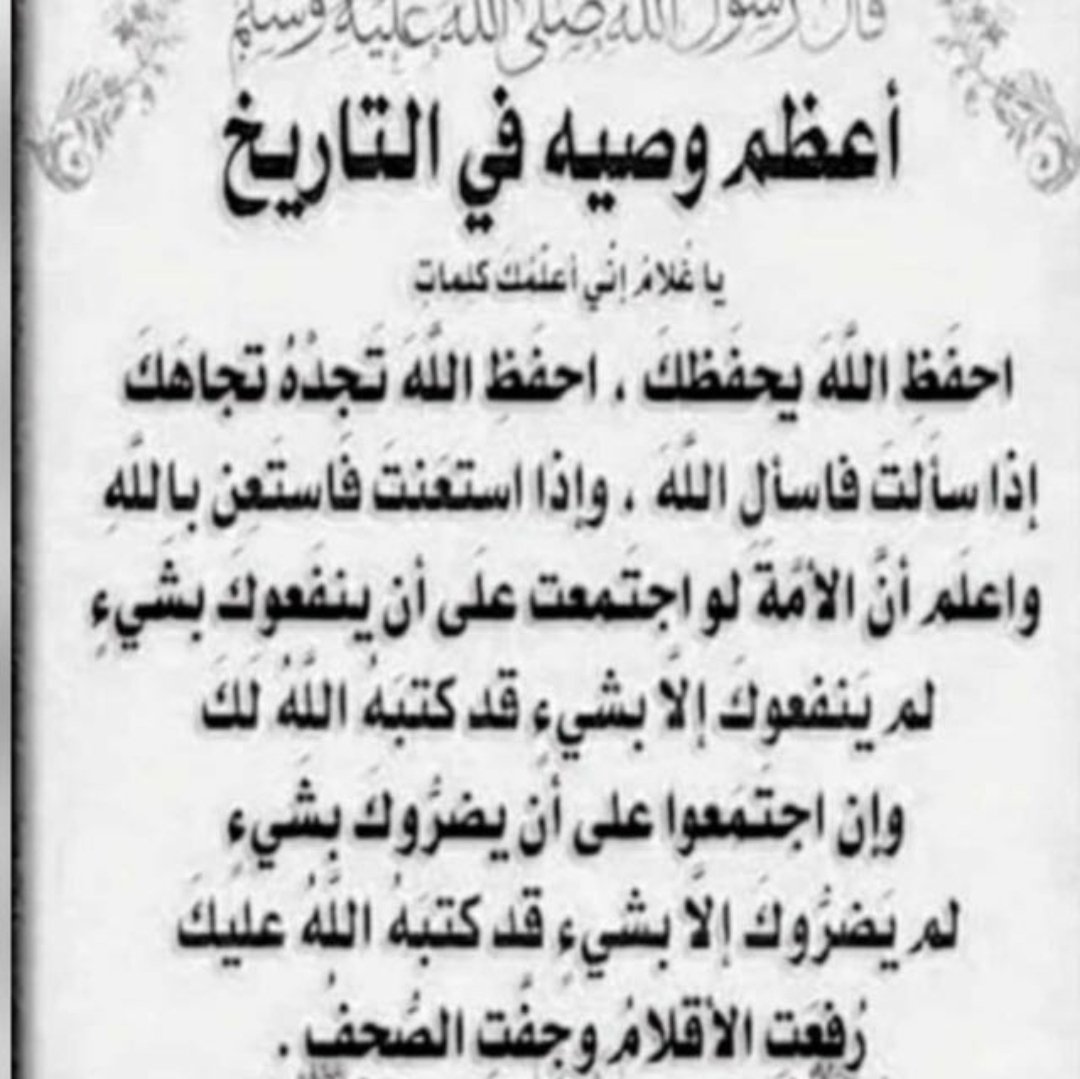 قال رسول الله صلى الله عليه وسلم
أعظم وصيه في التاريخ
يا غُلامُ إنِّي أعلِّمُكَ كلماتٍ
احفَظِ اللَّهَ يحفَظكَ ، احفَظِ اللَّهَ تَجِدْهُ تجاهَكَ
إذا سألتَ فاسألِ اللَّهَ ، وإذا استعَنتَ فاستَعِن باللَّهِ
واعلَم أنَّ الأمَّةَ لو اجتَمعت علَى أن ينفَعوكَ بشَيءٍ
لم يَنفعوكَ إلَّا بشيءٍ قد كتبَهُ اللَّهُ لَكَ
وإن اجتَمَعوا على أن يضرُّوكَ بشَيءٍ
لم يَضرُّوكَ إلَّا بشيءٍ قد كتبَهُ اللَّهُ عليكَ
رُفعَتِ الأقلامُ وجفَّتِ الصُّحفُ .